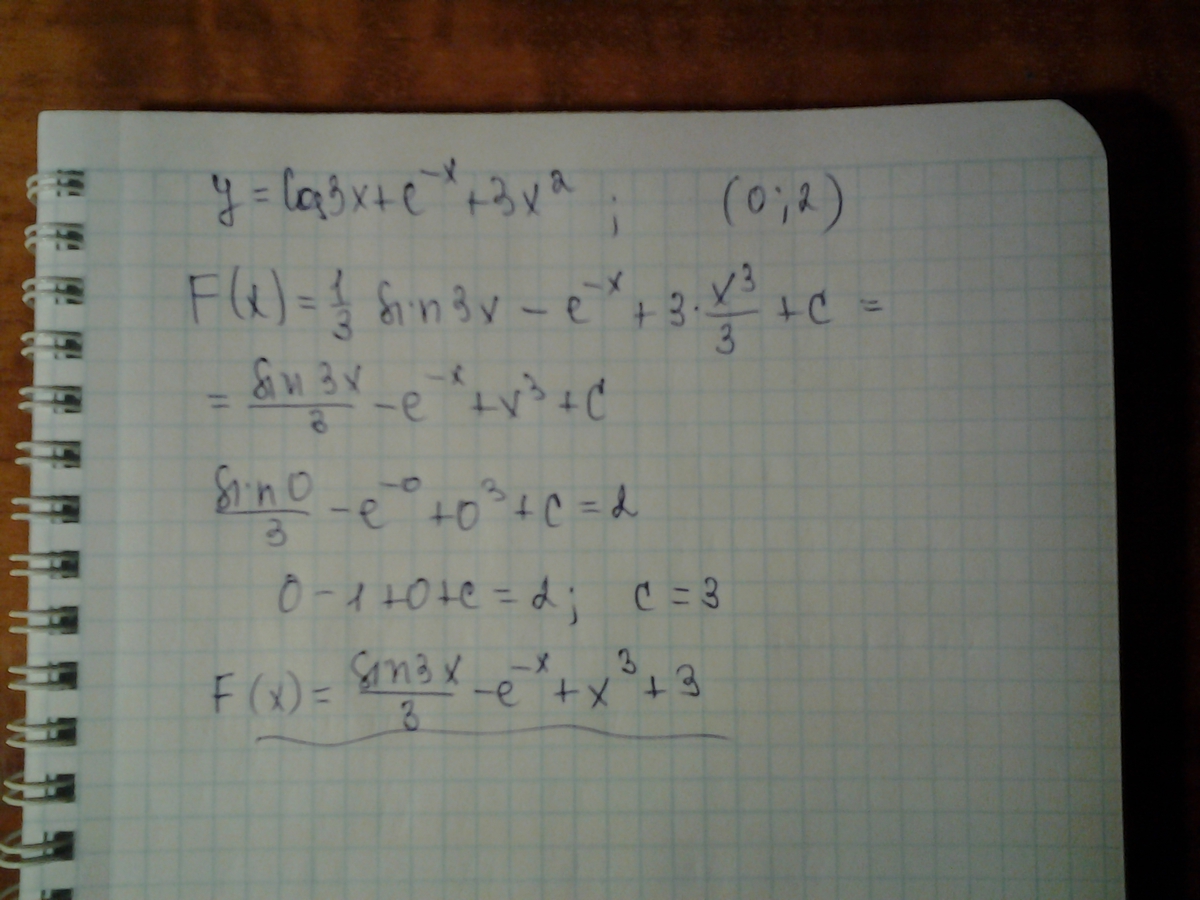 y = cos3x + e^{-x} + 3x^2 ; (0; 2)
F(x) = \frac{1}{3} sin3x - e^{-x} + 3 · \frac{x^3}{3} + C =
= \frac{sin 3x}{3} - e^{-x} + x^3 + C
\frac{sin 0}{3} - e^{-0} + 0^3 + C = 2
0 - 1 + 0 + C = 2; C = 3
F(x) = \frac{sin3x}{3} - e^{-x} + x^3 + 3